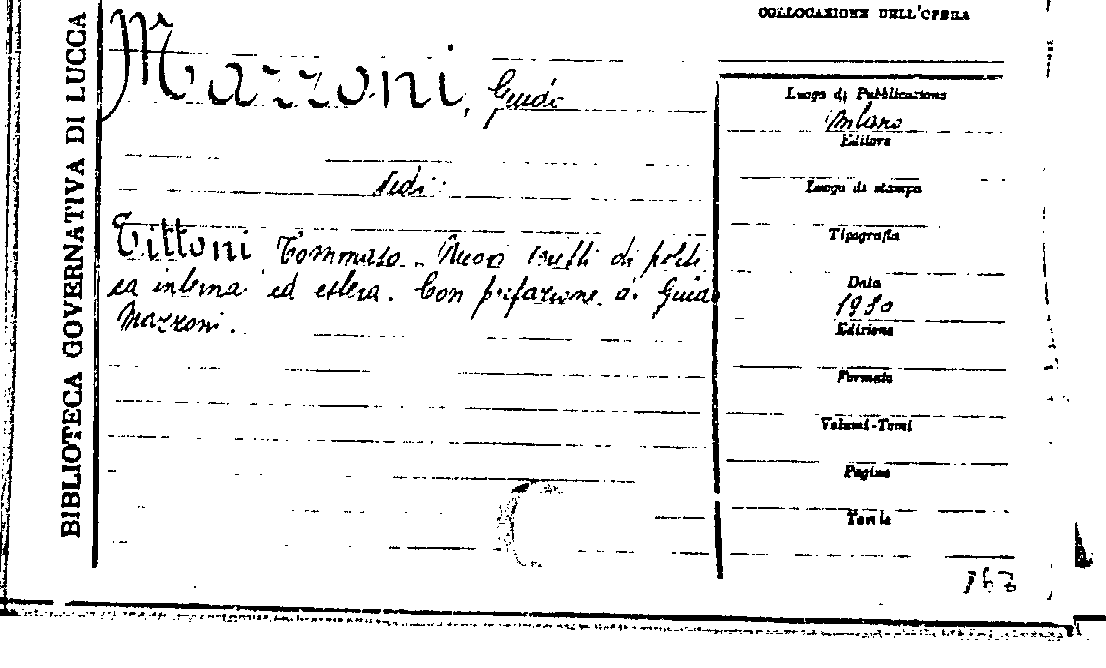 BIBLIOTECA GOVERNATIVA DI LUCCA
COLLOCAZIONE DELL'OPERA
Mazzoni, Guido
Vedi:
Tittoni Tommaso. Nuovi scritti di politi
ca interna ed estera. Con prefazione di Guido
Mazzoni.
Luogo di Pubblicazione
Milano
Editore
Luogo di stampa
Tipografia
Data
1930
Edizione
Formato
Volumi-Tomi
Pagine
Tavole